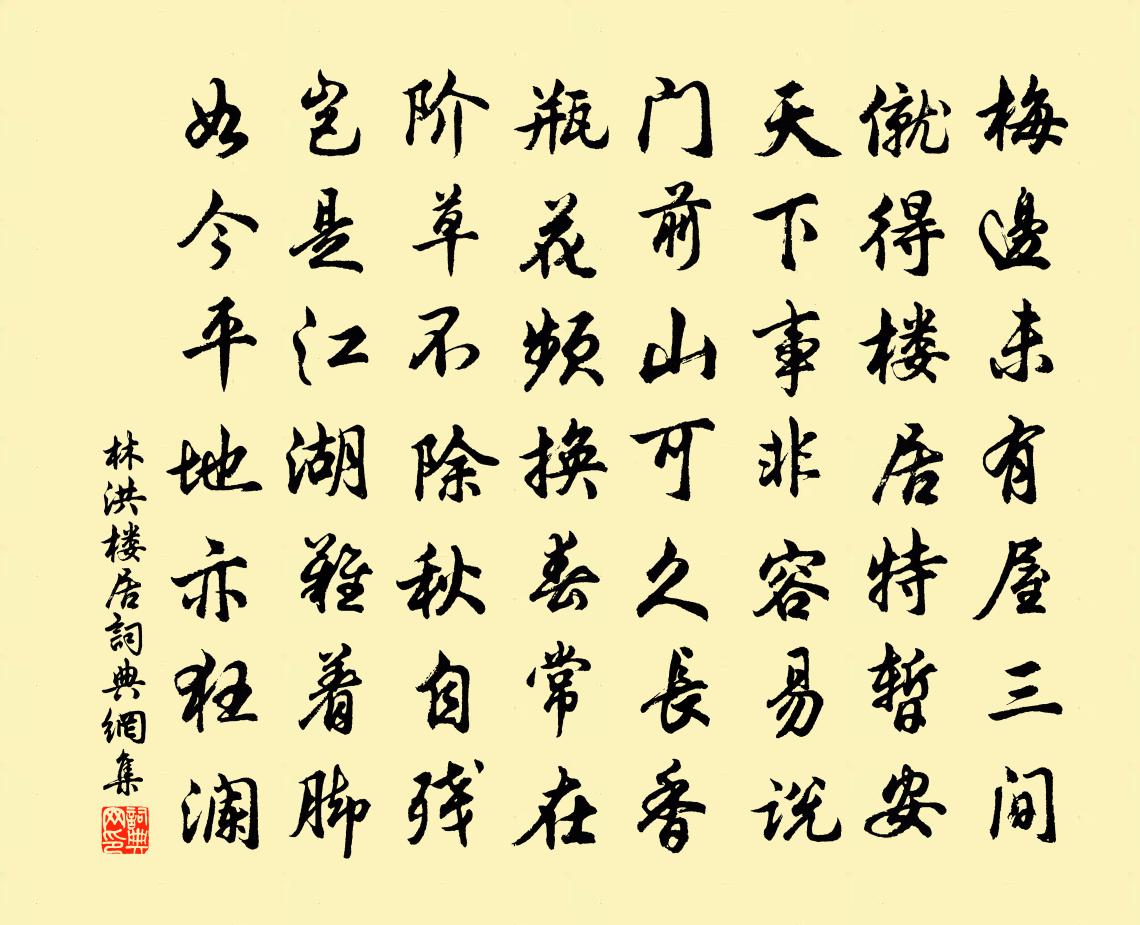 梅邊未有屋三间
僦得楼居特暫安
天下事非容易说
门前山可久長看
瓶花频换春常在
阶草不除秋自残
岂是江湖難着脚
如今平地亦狂澜
林洪楼居詞典網集
詞典网印